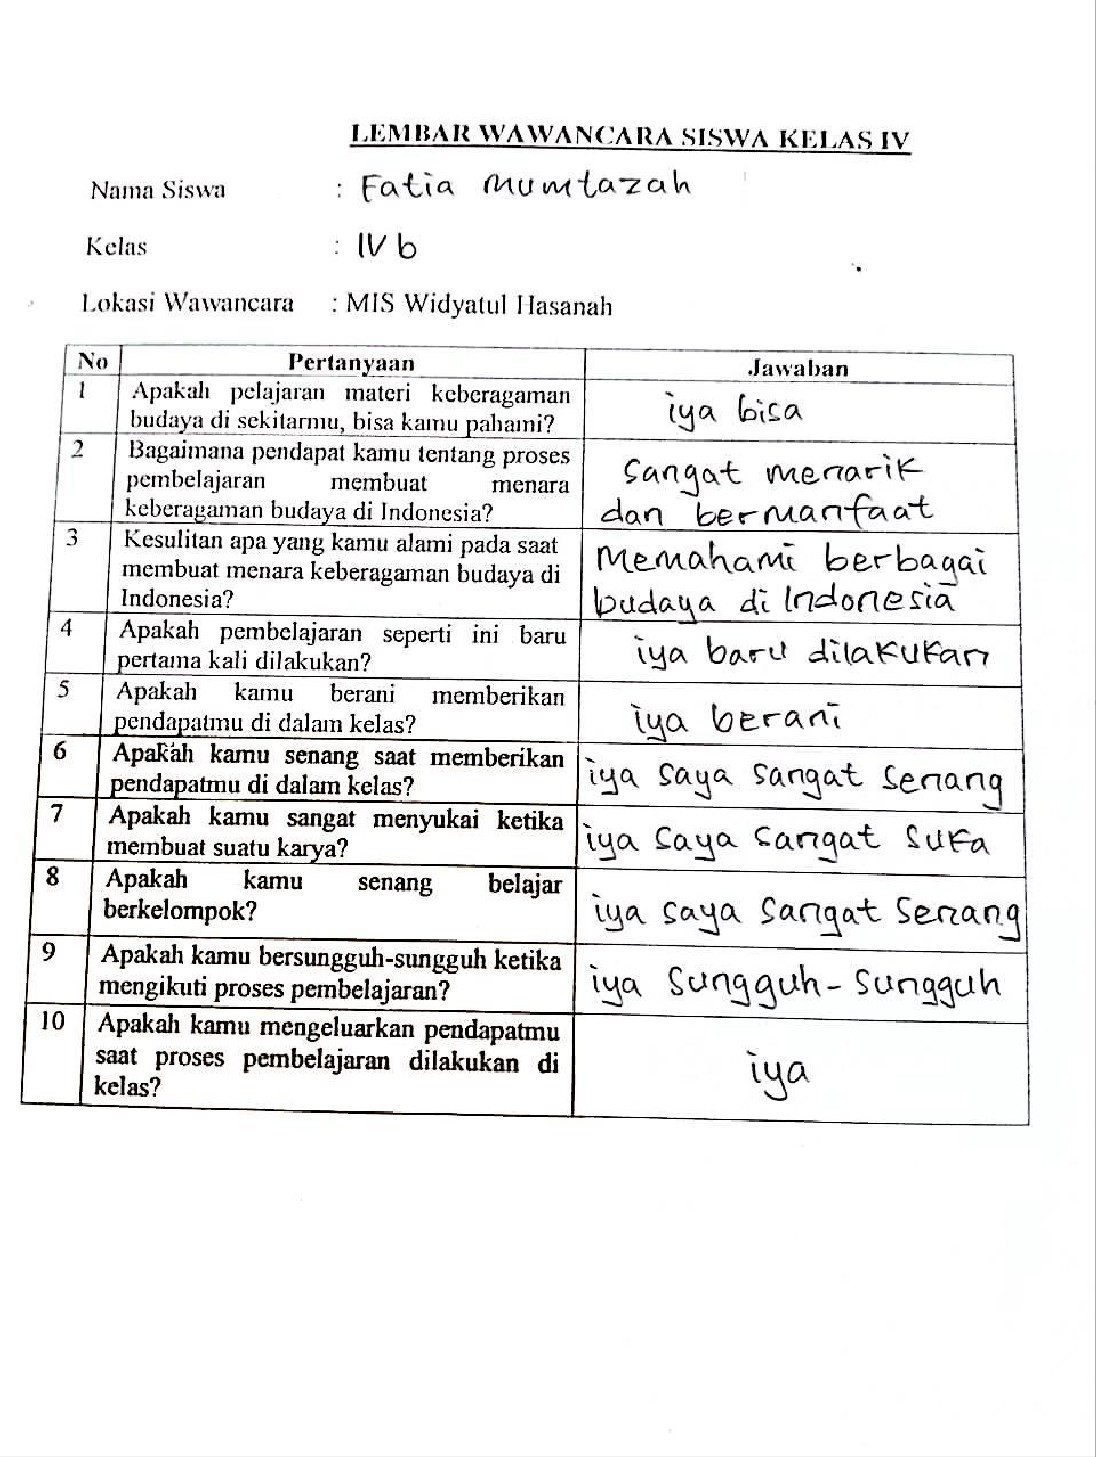 LEMBAR WAWANCARA SISWA KELAS IV
Nama Siswa : Fatia Mumtazah
Kelas : IV b
Lokasi Wawancara : MIS Widyatul Hasanah
No Pertanyaan Jawaban
1 Apakah pelajaran materi keberagaman
budaya di sekitarmu, bisa kamu pahami?
iya bisa
2 Bagaimana pendapat kamu tentang proses
pembelajaran membuat menara
keberagaman budaya di Indonesia?
Sangat menarik
dan bermanfaat
3 Kesulitan apa yang kamu alami pada saat
membuat menara keberagaman budaya di
Indonesia?
Memahami berbagai
budaya di Indonesia
4 Apakah pembelajaran seperti ini baru
pertama kali dilakukan?
iya baru dilakukan
5 Apakah kamu berani memberikan
pendapatmu di dalam kelas?
iya berani
6 Apakah kamu senang saat memberikan
pendapatmu di dalam kelas?
iya saya sangat senang
7 Apakah kamu sangat menyukai ketika
membuat suatu karya?
iya saya sangat suka
8 Apakah kamu senang belajar
berkelompok?
iya saya sangat senang
9 Apakah kamu bersungguh-sungguh ketika
mengikuti proses pembelajaran?
iya sungguh-sungguh
10 Apakah kamu mengeluarkan pendapatmu
saat proses pembelajaran dilakukan di
kelas?
iya